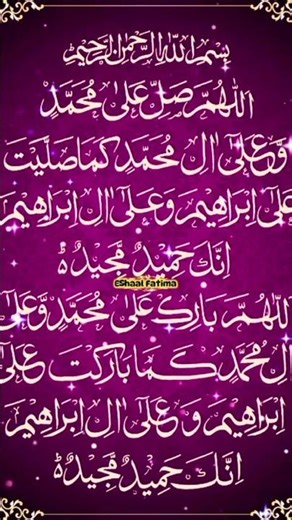 بسم الله الرحمن الرحيم
اَللّٰهُمَّ صَلِّ عَلٰى مُحَمَّدٍ
وَّعَلٰٓى اٰلِ مُحَمَّدٍ كَمَا صَلَّيْتَ
عَلٰٓى اِبْرَاهِيْمَ وَعَلٰٓى اٰلِ اِبْرَاهِيْمَ
اِنَّكَ حَمِيْدٌ مَّجِيْدٌ
EShaal Fatima
اَللّٰهُمَّ بَارِكْ عَلٰى مُحَمَّدٍ وَّعَلٰٓى
اٰلِ مُحَمَّدٍ كَمَا بَارَكْتَ عَلٰٓى
اِبْرَاهِيْمَ وَعَلٰٓى اٰلِ اِبْرَاهِيْمَ
اِنَّكَ حَمِيْدٌ مَّجِيْدٌ